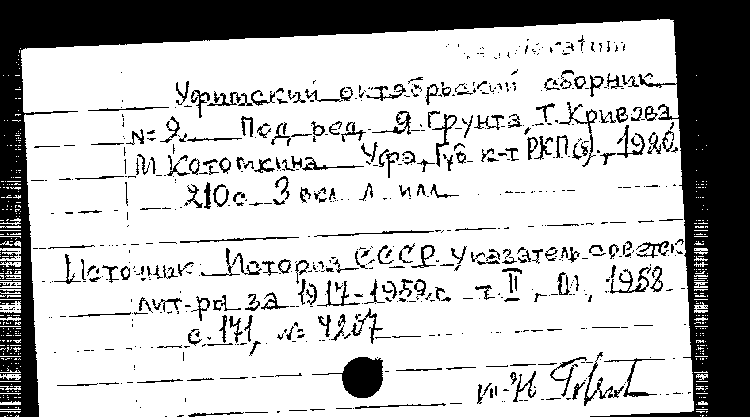 Desideratum
Уфимский октябрьский сборник
№ 2. Под ред. Я. Грунта, Т. Кривова
М Котомкина. Уфа, Губ к-т РКП(б), 1920
210с 3 вкл л. илл
Источник. История СССР Указатель советск
лит-ры за 1917-1952 г. т II, М, 1958
с. 171, № 4207
VII-76